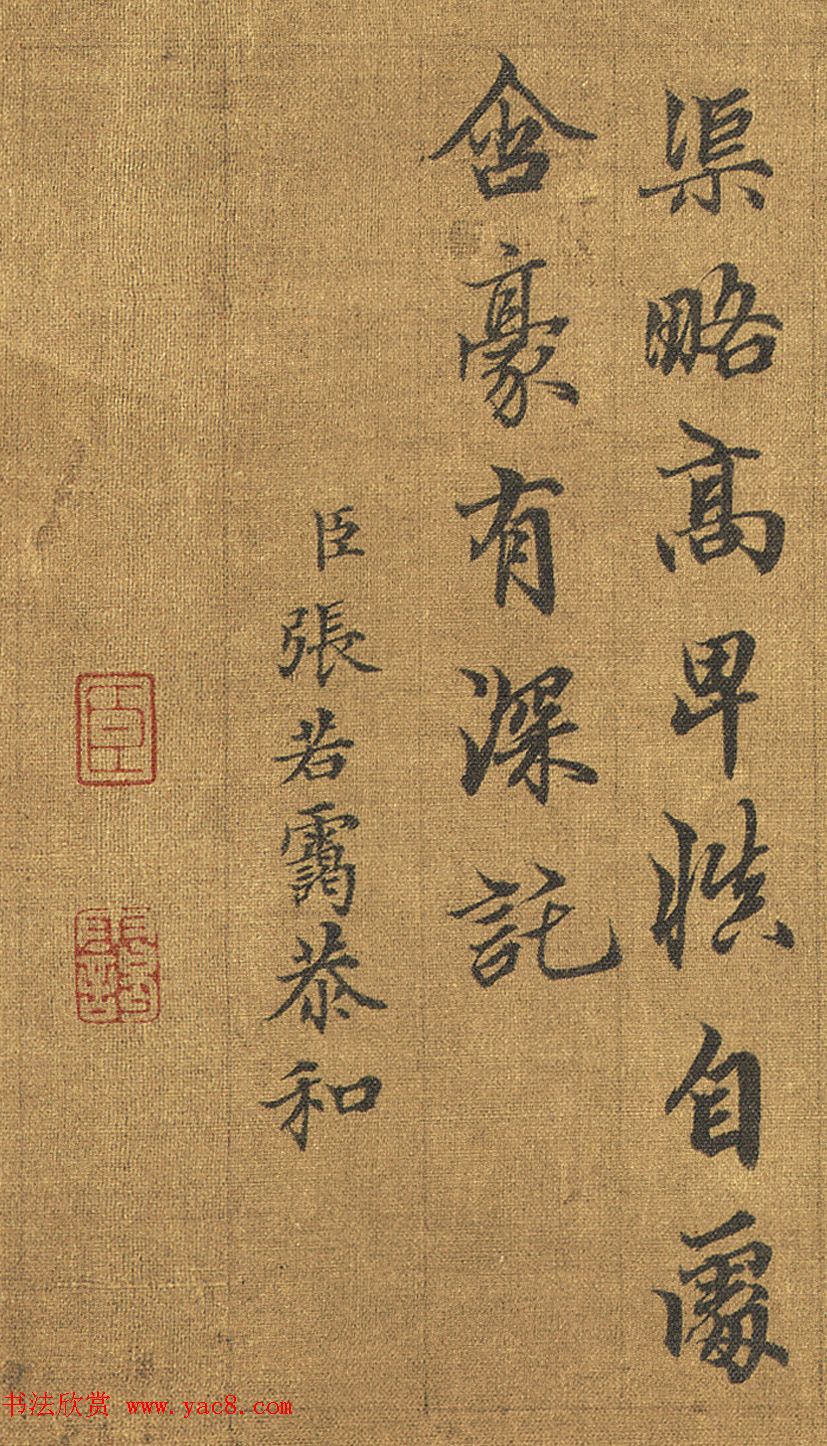 渠略高卑慎自處
含豪有深託
臣張若靄恭和
臣
書法欣赏 www.yac8.com